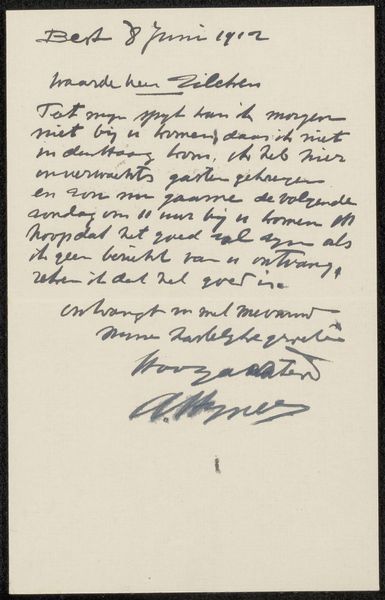 Best 8 Juni 1912
Waarde heer Zilcken
Tot mijn spijt kan ik morgen
niet bij u komen, daar ik niet
in den Haag kom, ik heb hier
onverwachts gasten gekregen
en zou nu gaarne de volgende
zondag om 11 uur bij u komen ik
hoop dat het goed zal zijn als
ik geen bericht van u ontvang,
reken ik dat het goed is.
ontvangt m met mevrouw
mijne hartelijke groeten
Hoogachtend